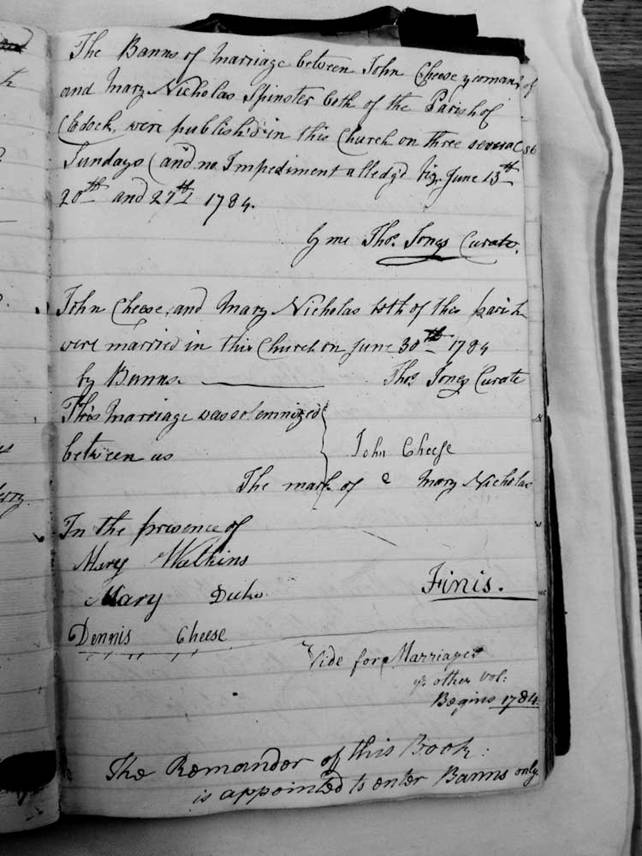 The Banns of Marriage between John Cheese yeoman of
and Mary Nicholas Spinster both of the Parish of
Clodock, were publish'd in this Church on three several
Sundays (and no Impediment alledg'd viz. June 13th
20th and 27th 1784.
by me Thos. Jones Curate.
John Cheese, and Mary Nicholas both of this parish
were married in this Church on June 30th 1784
by Banns. Thos. Jones Curate
This Marriage was solemnized
between us
John Cheese
The mark of e Mary Nicholas
In the presence of
Mary Watkins
Mary
Dennis Cheese
Finis.
Vide for Marriages
ye other vol:
Begins 1784.
The Remander of this Book:
is appointed to enter Banns only.